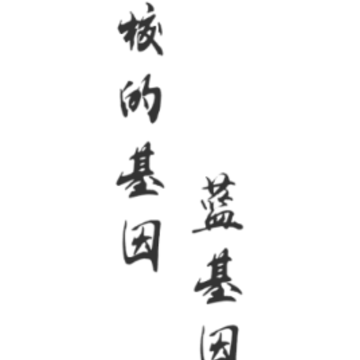 蓝基因
核的基因